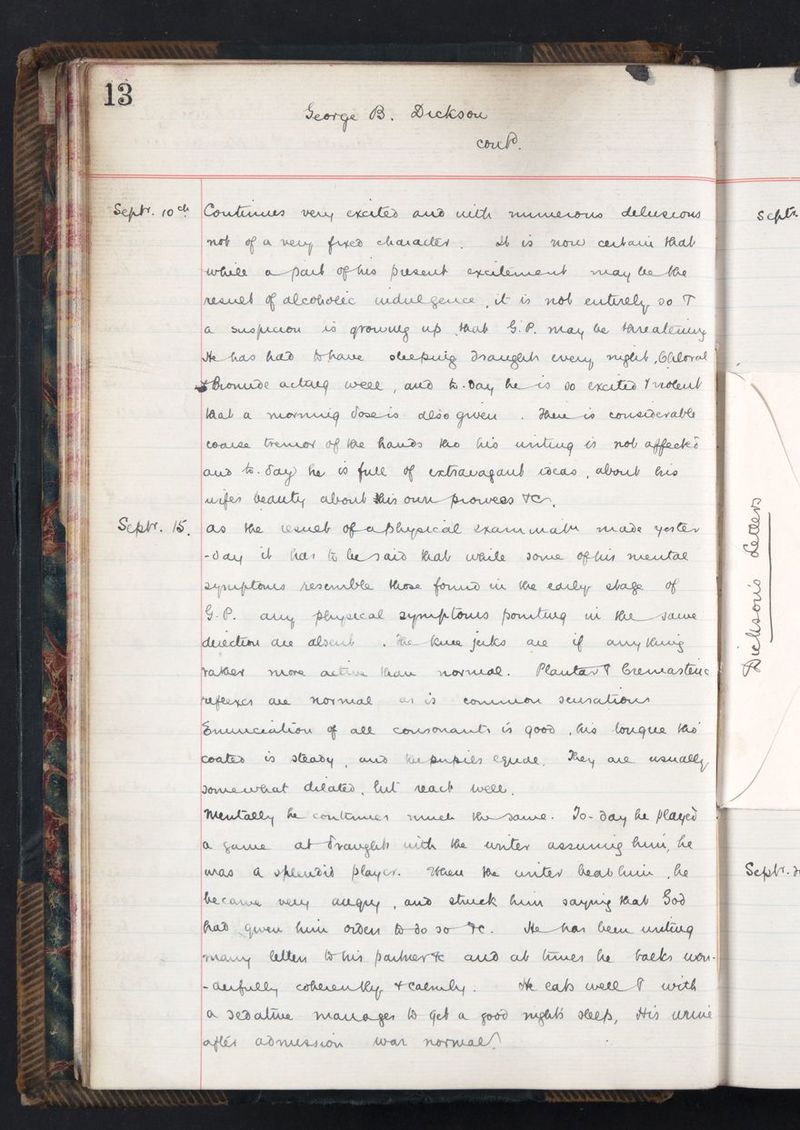 13
George B. Dickson
contd.
Septr. 10th Continues very excited and with numerous delusions
not of a very fixed character. It is now certain that
while a part of his present excitement may be the
result of alcoholic indulgence, it is not entirely so &
a suspicion is growing up that G.P. may be threatening
He has had to have sleeping draughts every night, Chloral
& Bromide acting well, and to-day he is so excited & violent
that a morning dose is also given. There is considerable
coarse tremor of the hands tho his writing is not affected
and to-day he is full of extravagant ideas, about his
wifes beauty about his own prowess &c.
Septr. 15. As the result of a physical examinatn made yester
-day it has to be said that while some of his mental
symptoms resemble those found in the early stage of
G.P. any physical symptoms pointing in the same
direction are absent. The knee jerks are if anything
rather more active than normal. Plantar & Cremasteric
reflexes are normal as is common sensations
Enunciation of all consonants is good, his tongue tho'
coated is steady, and the pupils equal. They are usually
somewhat dilated, but react well.
Mentally he continues much the same. To-day he played
a game at draughts with the writer assuring him, he
was a splendid player. When the writer beat him, he
became very angry, and struck him saying that God
had given him orders to do so &c. He has been writing
many letters to his partner &c and at times he talks won-
-derfully coherently & calmly. He eats well & with
a sedative manages to get a good night's sleep, His urine
after admission was normal.
Septr.
Dickson's Letters
Septr.